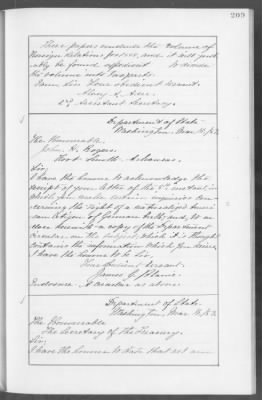 209
These papers conclude the volume of
Foreign Relations for 1891, and it will prob-
ably be found expedient to divide
the volume into two parts.
I am Sir Your obedient servant.
Alvey A. Adee.
2d Assistant Secretary.
Department of State
Washington, Mar 16/92.
The Honorable
John H. Rogers
Fort Smith Arkansas.
Sir:
I have the honor to acknowledge the
receipt of your letter of the 5th instant in
which you make certain inquiries con-
cerning the rights of a naturalized Ameri-
can citizen of German birth, and, to en-
close herewith a copy of the Department
circular on the subject, which it is thought
contains the information which you desire.
I have the honor to be Sir,
Your obedient servant.
James G. Blaine.
Enclosure: A circular as above.
Department of State
Washington, Mar 16/92.
The Honourable
The Secretary of the Treasury.
Sir:
I have the honor to state that